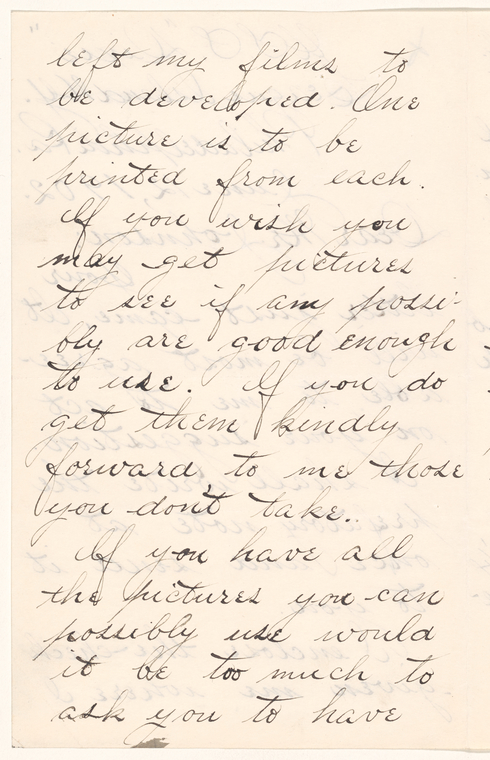 left my films to
be developed. One
picture is to be
printed from each.
If you wish you
may get pictures
to see if any possi-
bly are good enough
to use. If you do
get them kindly
forward, to me those
you don't take..
If you have all
the pictures you can
possibly use would
it be too much to
ask you to have